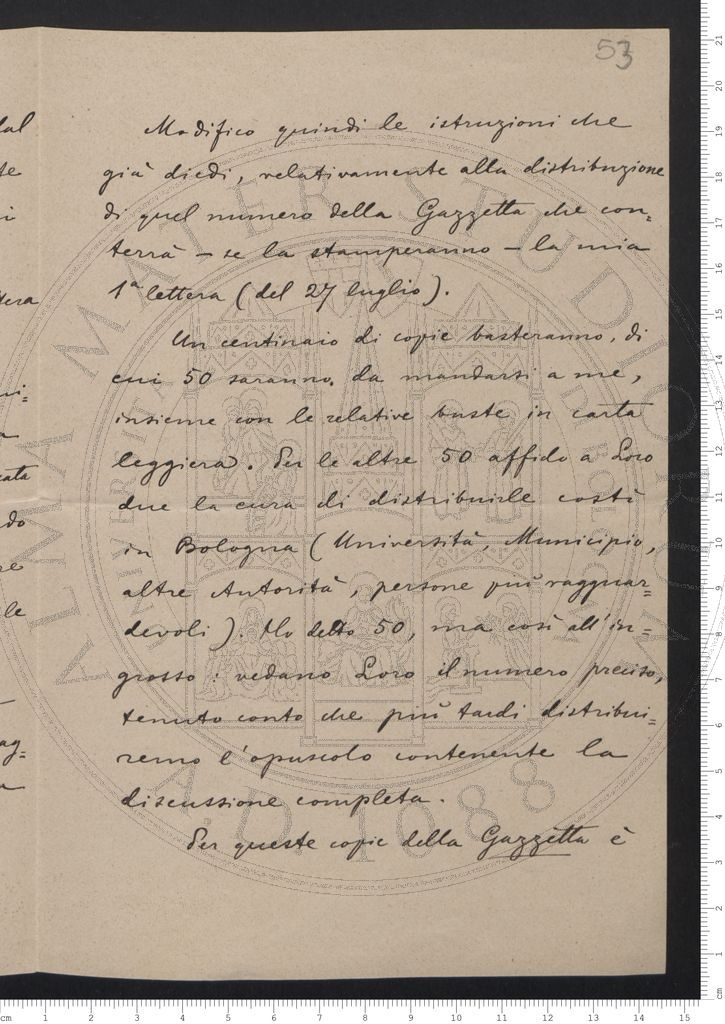 53
Modifico quindi le istruzioni che
già diedi, relativamente alla distribuzione
di quel numero della Gazzetta che con=
terrà – se la stamperanno – la mia
1ª lettera (del 27 luglio).
Un centinaio di copie basteranno, di
cui 50 saranno da mandarsi a me,
insieme con le relative buste in carta
leggiera. Per le altre 50 affido a Loro
due la cura di distribuirle costì
in Bologna (Università, Municipio,
altre Autorità, persone più ragguar=
devoli). Ho detto 50, ma così all'in=
grosso: vedano Loro il numero preciso,
tenuto conto che più tardi distribui=
remo l'opuscolo contenente la
discussione completa.
Per queste copie della Gazzetta è
ALMA MATER STUDIORUM
A.D. 1088